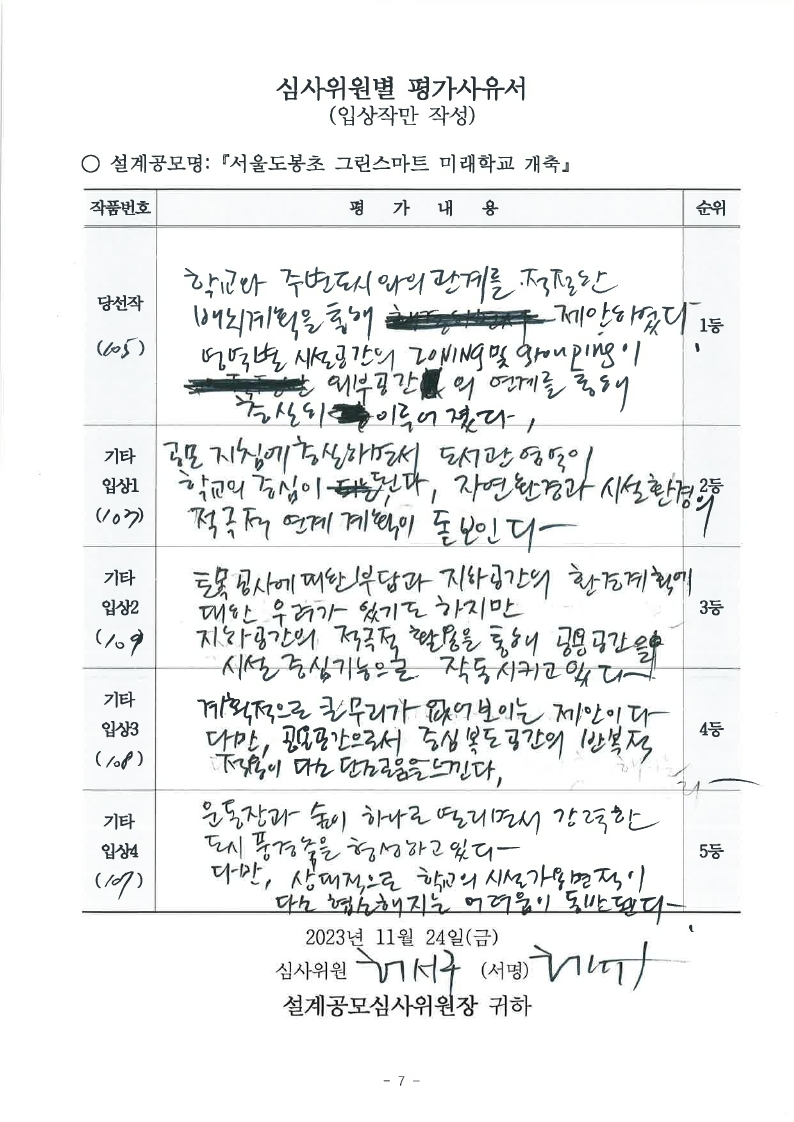 심사위원별 평가사유서
(입상작만 작성)
○ 설계공모명:『서울도봉초 그린스마트 미래학교 개축』
작품번호 평 가 내 용 순위
당선작
(105)
학교와 주변도시와의 관계를 적절한
배치계획을 통해 제안하였다.
영역별 시설공간의 ZONING및 Grouping이
외부공간의 연계를 통해
충실히 이루어 졌다,
1등
기타
입상1
(103)
공모 지침에 충실하면서 도서관 영역이
학교의 중심이 된다, 자연환경과 시설환경의
적극적 연계 계획이 돋보인다
2등
기타
입상2
(109)
토목공사에 대한 부담과 지하공간의 환경계획에
대한 우려가 있기도 하지만
지하공간의 적극적 활용을 통해 공용공간을
시설 중심기능으로 작동시키고 있다
3등
기타
입상3
(108)
계획적으로 큰 무리가 없어 보이는 제안이다
다만, 공용공간으로서 중심 복도공간의 반복적
적용이 다소 단조로움을 느낀다,
4등
기타
입상4
(107)
운동장과 숲이 하나로 열리면서 강력한
도시 풍경축을 형성하고 있다
다만, 상대적으로 학교의 시설가용면적이
다소 협소해지는 어려움이 동반된다.
5등
2023년 11월 24일(금)
심사위원 허서구 (서명)
설계공모심사위원장 귀하
- 7 -